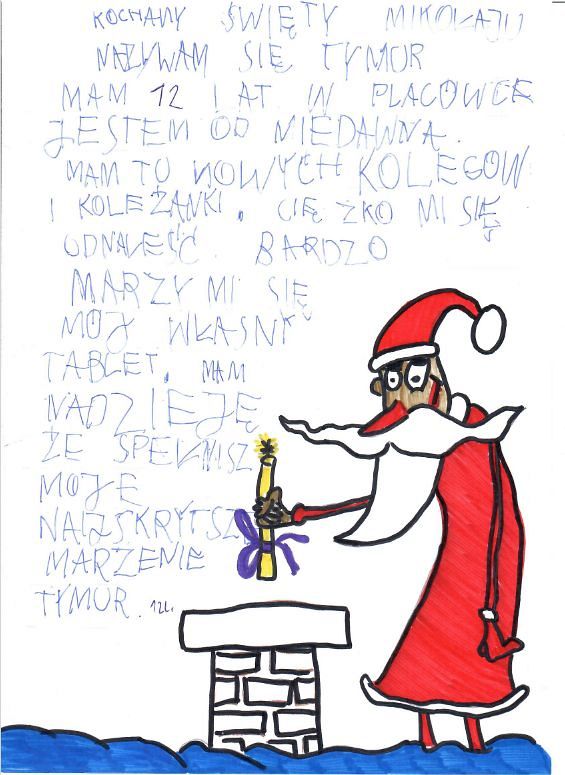 KOCHANY ŚWIĘTY MIKOŁAJU
NAZYWAM SIĘ TYMUR
MAM 12 LAT W PLACÓWCE
JESTEM OD NIEDAWNA.
MAM TU NOWYCH KOLEGÓW
I KOLEŻANKI. CIĘŻKO MI SIĘ
ODNALEŚĆ. BARDZO
MARZY MI SIĘ
MÓJ WŁASNY
TABLET. MAM
NADZIEJĘ
ŻE SPEŁNISZ
MOJE
NAJSKRYTSZE
MARZENIE
TYMUR. 12L.